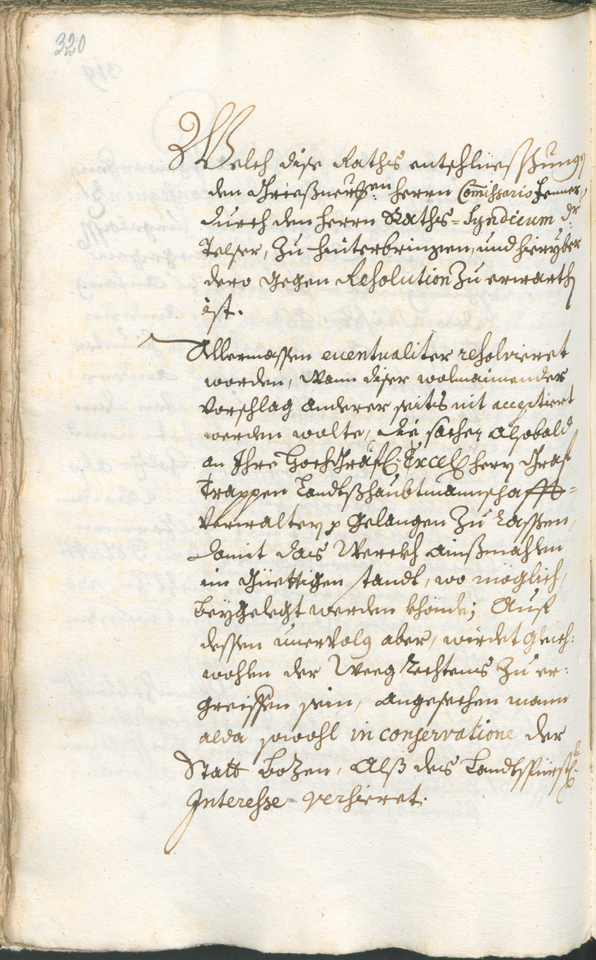 320
Welch dise Raths entschliesshung
den Grießneryschen Herrn Commissario Jenner,
durch den Herrn Raths-Syndicum Dr
Telser, zu hinterbringen, und hieryber
dero gegen Resolution zu erwarth
ist.
Allermassen euentualiter resolvieret
worden, Wann diser wolmainender
Vorschlag anderer seits nit acceptiert
werden wolte, die sachen alsobald
an Ihre HochGräfl. Excell. Herrn Graf
Trappen Landtßhaubtmannschaffts-
Verwaltern p gelangen zu lassen,
damit das Werckh aussmahlen
im güettigen standt, wo möglich,
beÿgelegt werden khönde; Auf
dessen unervolg aber, würdet gleich-
wohlen der Weeg Rechtens zu er-
greissen sein, angesechen mann
alda sowohl in conservatione der
Statt Bozen, Alß des Landtsfürstl.
Interesse versieret.